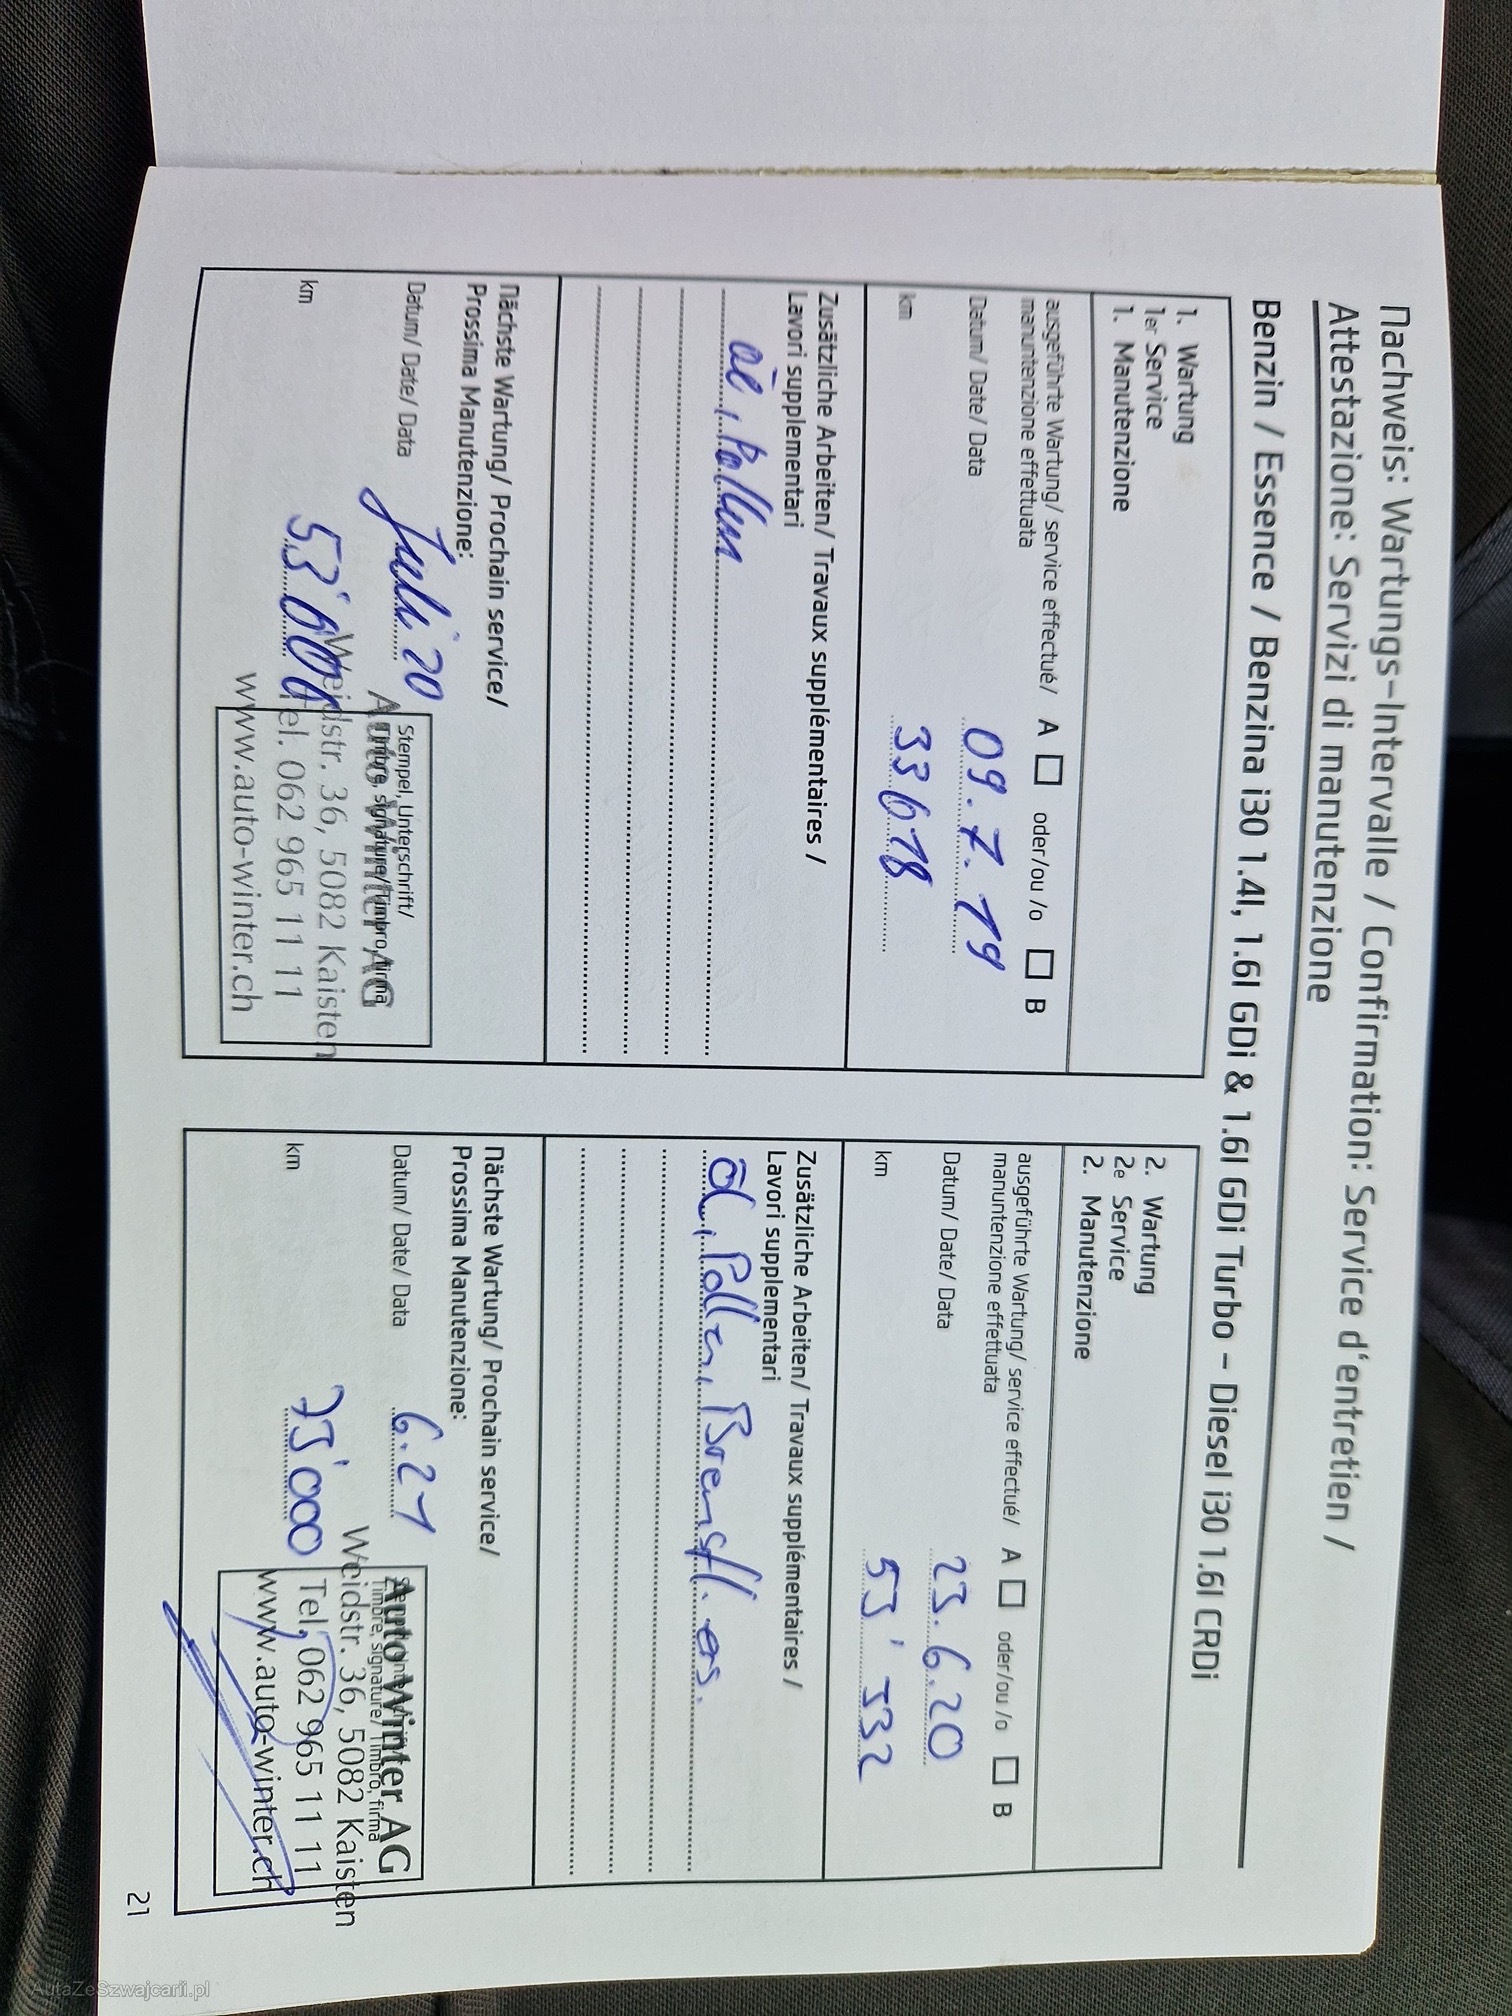 Nachweis: Wartungs-Intervalle / Confirmation: Service d'entretien /
Attestazione: Servizi di manutenzione
Benzin / Essence / Benzina i30 1.4l, 1.6l GDi & 1.6l GDi Turbo – Diesel i30 1.6l CRDi
1. Wartung
1er Service
1. Manutenzione
ausgeführte Wartung/ service effectué/ A oder/ou /o B
manuntenzione effettuata
Datum/ Date/ Data 09.7.19
km 33618
Zusätzliche Arbeiten/ Travaux supplémentaires /
Lavori supplementari
öl, Pollen
Nächste Wartung/ Prochain service/
Prossima Manutenzione:
Datum/ Date/ Data Juli 20
km 53'600
Stempel, Unterschrift/
Timbre, signature/Timbro, firma
Auto Winter AG
Weidstr. 36, 5082 Kaisten
Tel. 062 965 11 11
www.auto-winter.ch
2. Wartung
2e Service
2. Manutenzione
ausgeführte Wartung/ service effectué/ A oder/ou /o B
manuntenzione effettuata
Datum/ Date/ Data 23.6.20
km 53'532
Zusätzliche Arbeiten/ Travaux supplémentaires /
Lavori supplementari
öl, Pollen, Bremsfl. ers.
Nächste Wartung/ Prochain service/
Prossima Manutenzione:
Datum/ Date/ Data 6.21
km 73'000
Timbre, signature/ Timbro, firma
Auto Winter AG
Weidstr. 36, 5082 Kaisten
Tel. 062 965 11 11
www.auto-winter.ch
21
AutaZeSzwajcarii.pl